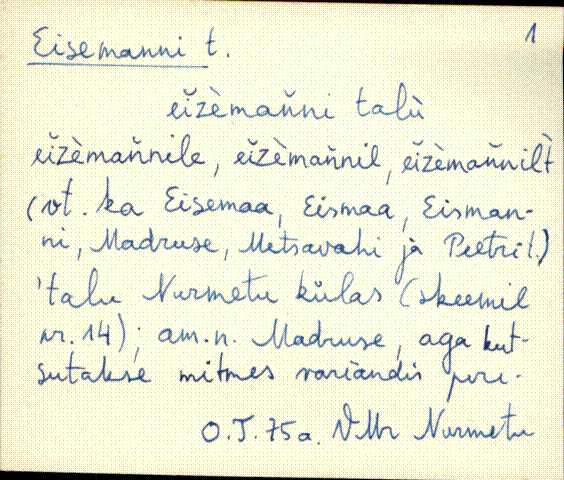 Eisemanni t. 1
eĭzèmaňni talù
eĭzèmaňnile, eĭzèmaňnil, eĭzèmaňnilt̀
(vt. ka Eisemaa, Eismaa, Eisman-
ni, Madruse, Metsavahi ja Peetri t.)
'talu Nurmetu külas (skeemil
nr. 14); am.n. Madruse, aga kut-
sutakse mitmes variandis pere-
O.T. 75a. VMr Nurmetu